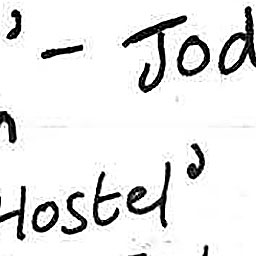 ' - Jod
n
Hostel'